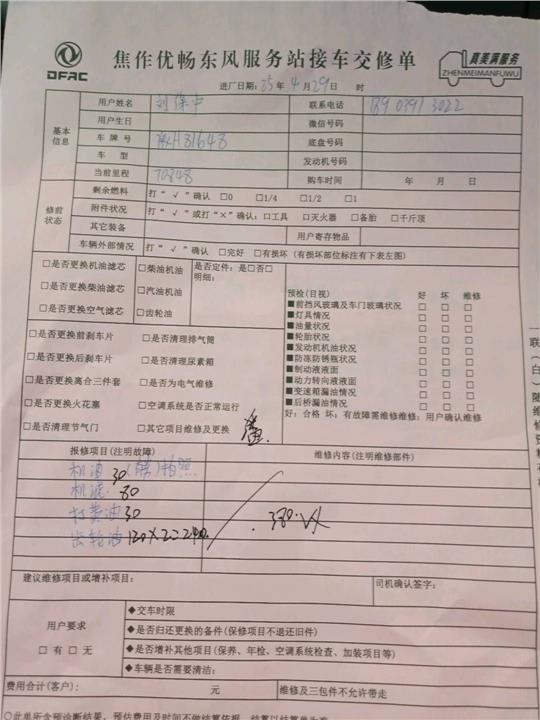 DFAC
焦作优畅东风服务站接车交修单
真美满服务
ZHENMEIMANFUWU
进厂日期: 25 年 4 月 29 日 时
基本信息
用户姓名 联系电话
用户生日 微信号码
车牌号 底盘号码
车 型 发动机号码
当前里程 70848 购车时间 年 月 日
修前状态
剩余燃料 打“√”确认 □0 □1/4 □1/2 □1
附件状况 打“√”或打“×”确认: □工具 □灭火器 □备胎 □千斤顶
其它装备 用户寄存物品
车辆外部情况 打“√”确认 □完好 □有损坏 (有损坏部位标注有下表左图)
□是否更换机油滤芯 □柴油机油 是否定件: 是□否□
明细:
□是否更换柴油滤芯 □汽油机油
□是否更换空气滤芯 □齿轮油
□是否更换前刹车片 □是否清理排气筒
□是否更换后刹车片 □是否清理尿素箱
□是否更换离合三件套 □是否为电气维修
□是否更换火花塞 □空调系统是否正常运行
□是否清理节气门 □其它项目维修及更换
预检(目视) 好 坏 维修
■前挡风玻璃及车门玻璃状况 □ □ □
■灯具情况 □ □ □
■油量状况 □ □ □
■轮胎状况 □ □ □
■发动机机油状况 □ □ □
■防冻防锈瓶状况 □ □ □
■制动液液面 □ □ □
■动力转向液液面 □ □ □
■变速箱漏油情况 □ □ □
■后桥漏油情况 □ □ □
好: 合格 坏: 有故障需维修维修: 用户确认维修
报修项目(注明故障) 维修内容(注明维修部件)
机油 30 (带) 拍照
机滤 80
打黄油 30
齿轮油 120×2=240
380.
建议维修项目或增补项目: 司机确认签字:
用户要求
□有 □无
◆交车时限
◆是否归还更换的备件(保修项目不退还旧件)
◆是否增补其他项目(保养、年检、空调系统检查、加装项目等)
◆车辆是否需要清洁:
费用合计(客户): 元 维修及三包件不允许带走
一联(白)